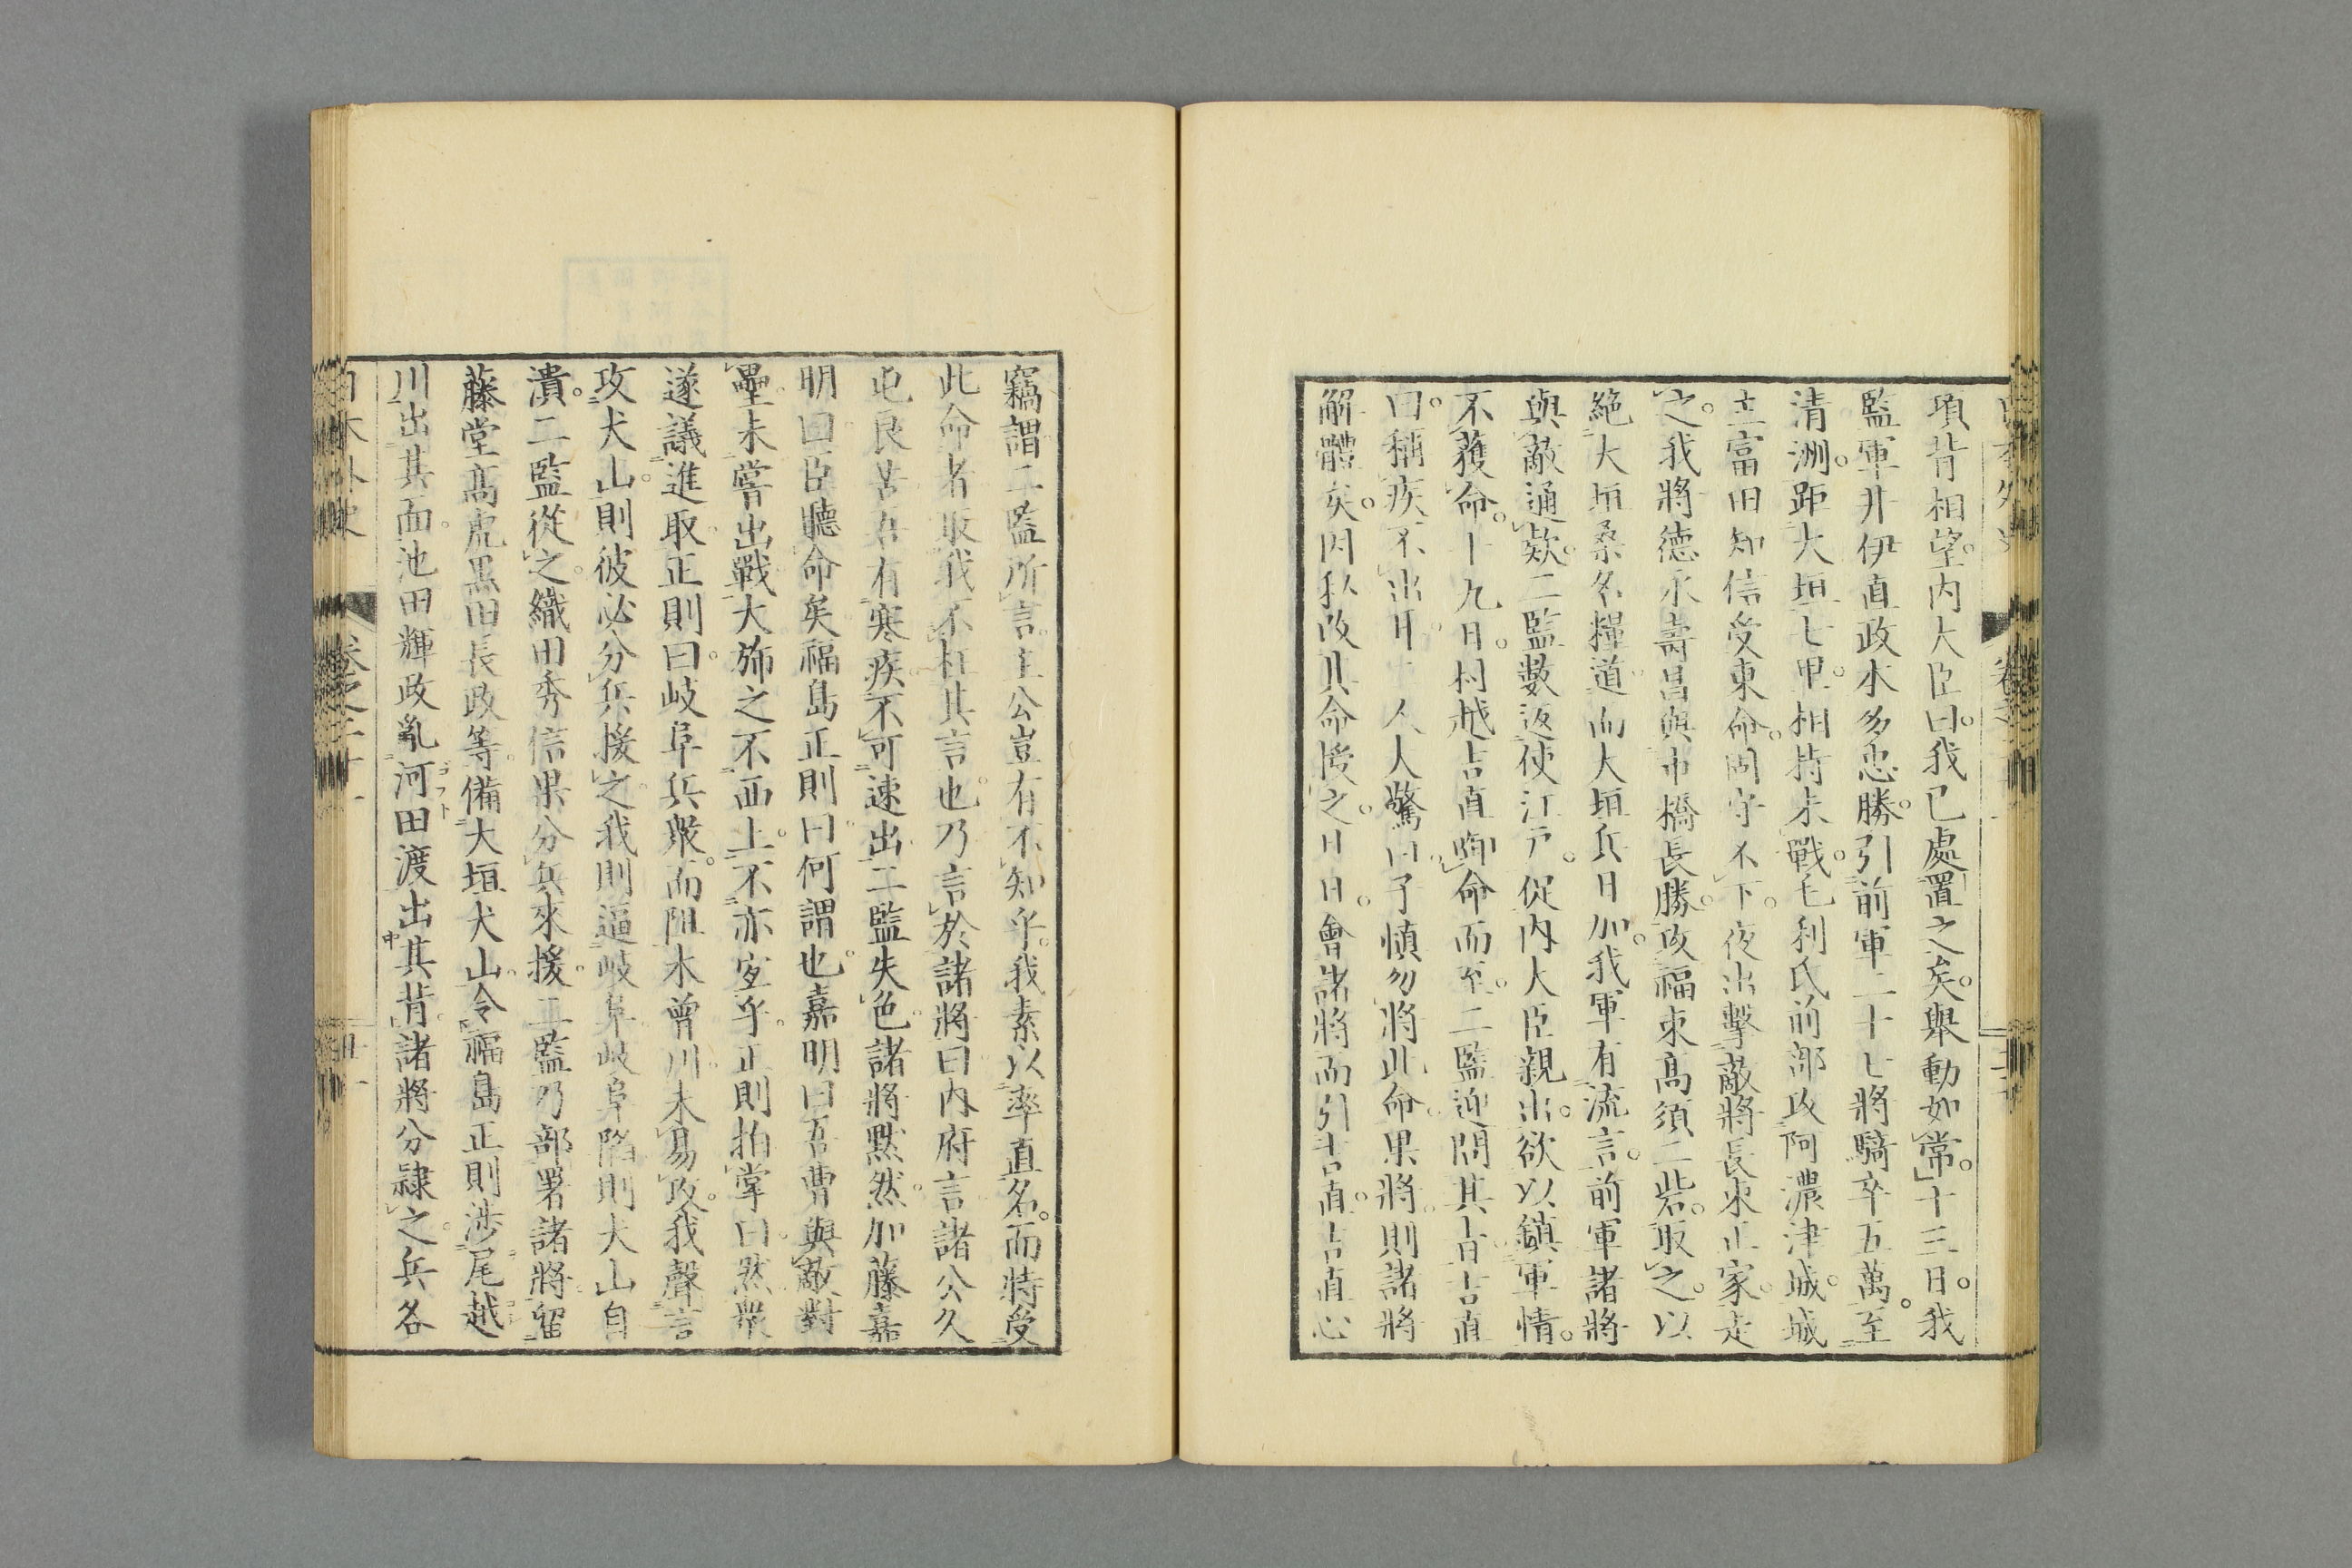 項背相望。内大臣曰。我已處置之矣。舉動如常。十三日。我
監軍井伊直政本多忠勝。引前軍二十七將騎卒五萬。至
清洲。距大垣七里。相持未戰。毛利氏前部攻阿濃津城。城
主富田知信受東命。固守不下。夜出擊敵將長束正家。走
之。我將德永壽昌與市橋長勝。攻福束高須二砦。取之。以
絶大垣桑名糧道。而大垣兵日加。我軍有流言。前軍諸將
與敵通款。二監數返使江戸。促内大臣親出。欲以鎮軍情。
不獲命。十九日。村越吉直啣命而至。二監迎問其旨。吉直
曰。稱疾不出耳。二人大驚曰。子愼勿將此命。果將。則諸將
解體矣。因私改其命授之。廿日。會諸將而引吉直。吉直心
竊謂二監所言。主公豈有不知乎。我素以率直名。而特受
此命者。取我不枉其言也。乃言於諸將曰。内府言。諸公久
屯良苦。吾有寒疾。不可速出。二監失色。諸將默然。加藤嘉
明曰。臣聽命矣。福島正則曰。何謂也。嘉明曰。吾曹與敵對
壘。未嘗出戰。大旆之不西上。不亦宜乎。正則拍掌曰。然。衆
遂議進取。正則曰。岐阜兵衆。而阻木曾川。未易攻。我聲言
攻犬山。則彼必分兵援之。我則逼岐阜。岐阜陷則犬山自
潰。二監從之。織田秀信果分兵來援。二監乃部署諸將。留
藤堂高虎黒田長政等。備大垣犬山。令福島正則渉尾越
川出其面。池田輝政亂河田渡出其背。諸將分隷之。兵各
日本外史 卷之二十一